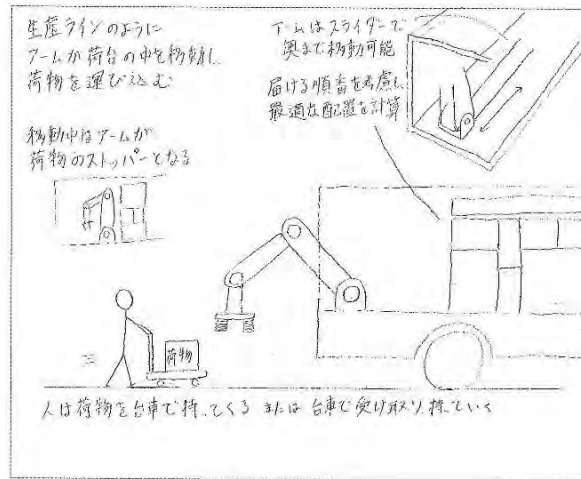 生産ラインのように
アームが荷台の中を移動し
荷物を運び込む
移動中はアームが
荷物のストッパーとなる
アームはスライダーで
奥まで移動可能
届ける順番を考慮し
最適な配置を計算
荷物
人は荷物を台車で持ってくる または 台車で受け取り、持っていく